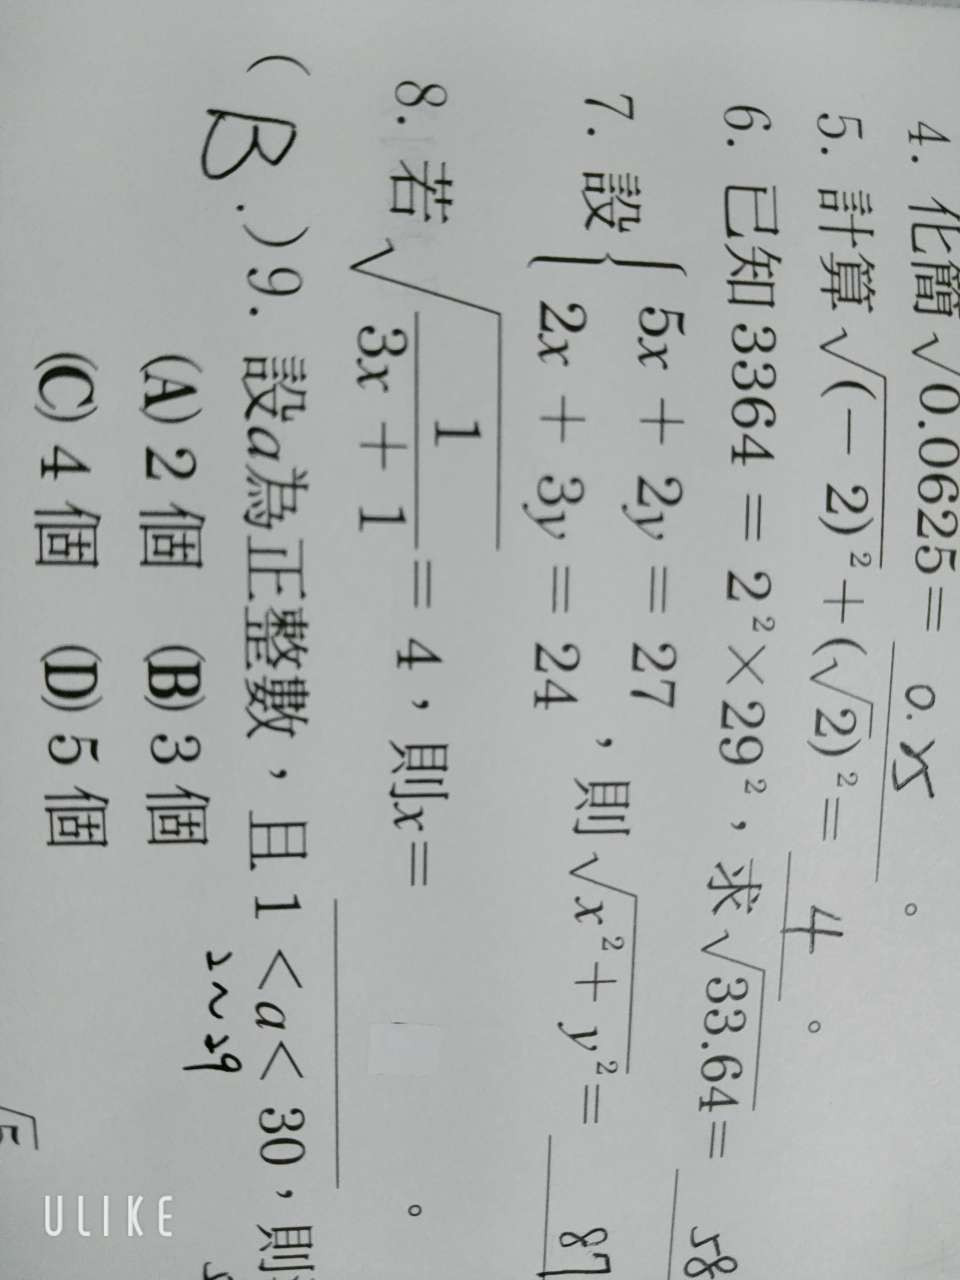 4. 化簡√0.0625= 0.25 。
5. 計算√(-2)²+(√2)²= 4 。
6. 已知3364=2²×29²,求√33.64= 58
7. 設{5x+2y=27
2x+3y=24 ,則√x²+y²= 87
8. 若√1/(3x+1)=4,則x= 。
(B.)9. 設a為正整數,且1<a<30,則
2~29
(A) 2個 (B) 3個
(C) 4個 (D) 5個
√5
ULIKE